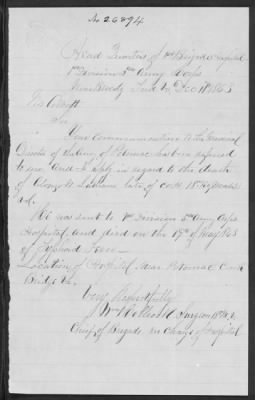 No 26894
Head Quarters of 1st Brigade Hospital
1st Division 5th Army Corps
Near Brandy Va Dec 18 1863
Sir
Your communication to the Medical
Director of the Army of Potomac has been referred
to me and I reply in regard to the death
of late of Co H 18 Regt Mass
Vol.
He was sent to 1st Division 5th Army Corps
Hospital and died on the 19th of May 1863
of Typhoid Fever
Location of Hospital near Potomac Creek
Bridge Va.
Very Respectfully
J. Wm Surgeon
Chief of Brigade in Charge of Hospital